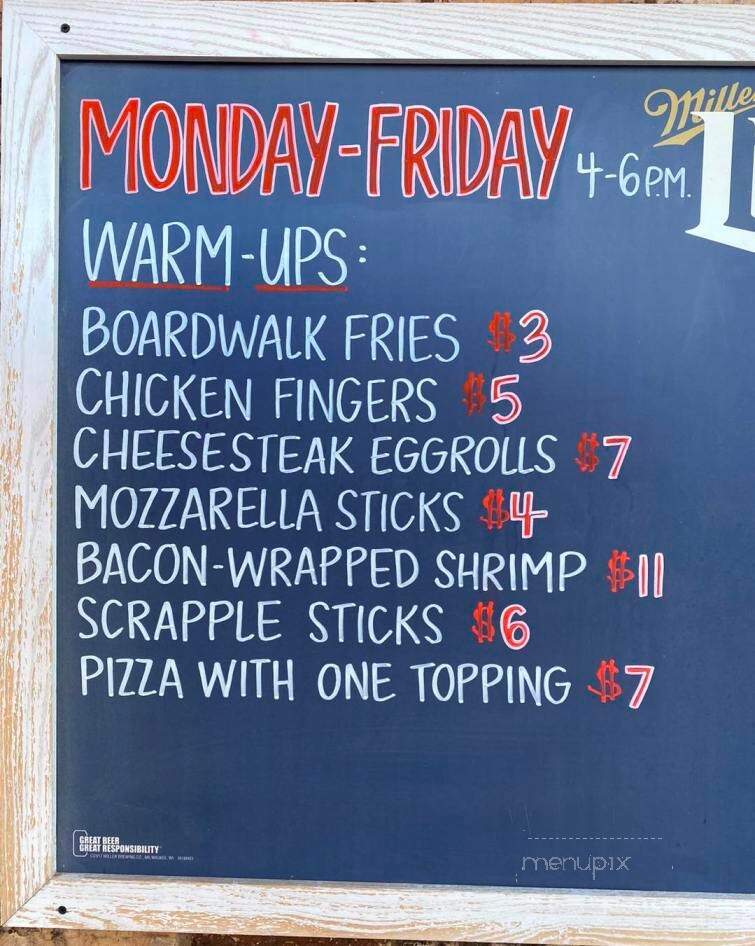 MONDAY-FRIDAY 4-6 P.M.
Mille
WARM-UPS:
BOARDWALK FRIES $3
CHICKEN FINGERS $5
CHEESESTEAK EGGROLLS $7
MOZZARELLA STICKS $4
BACON-WRAPPED SHRIMP $11
SCRAPPLE STICKS $6
PIZZA WITH ONE TOPPING $7
GREAT BEER
GREAT RESPONSIBILITY
menupix